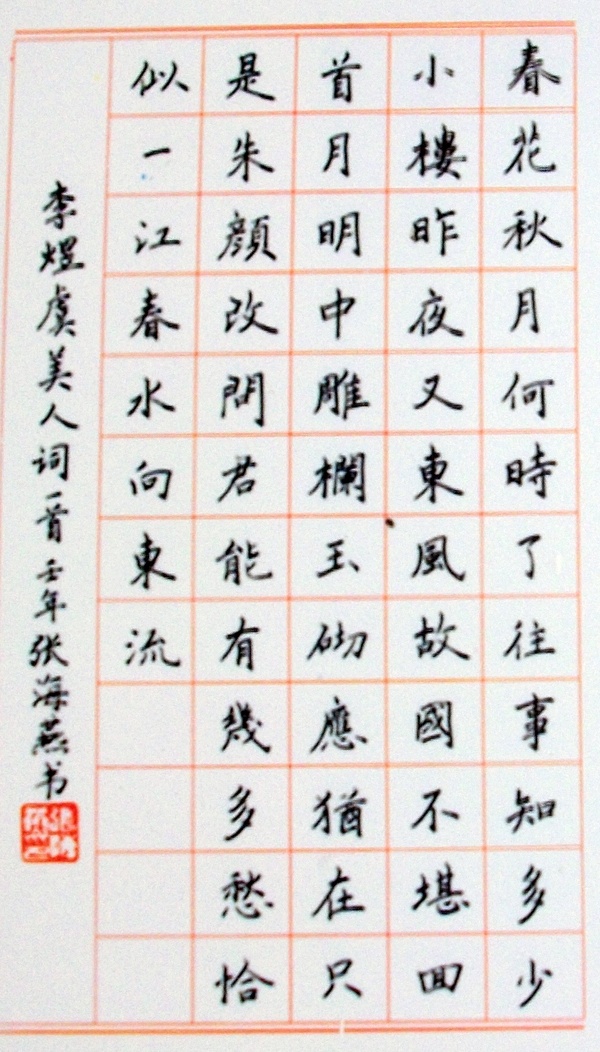 春花秋月何時了往事知多少
小樓昨夜又東風故國不堪回
首月明中雕欄玉砌應猶在只
是朱顏改問君能有幾多愁恰
似一江春水向東流
李煜虞美人词一首壬年张海燕书